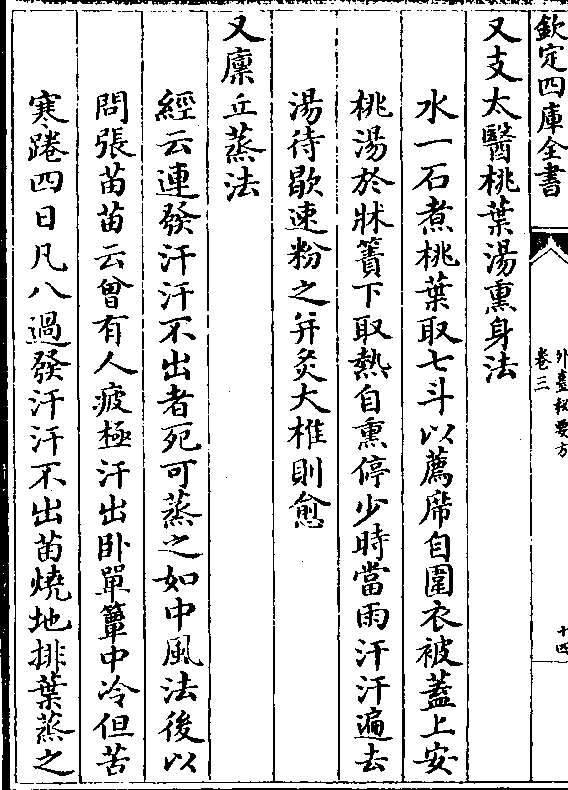 欽定四庫全書
外臺秘要方
卷三
十四
又支太醫桃葉湯熏身法
水一石煮桃葉取七斗以薦席自圍衣被蓋上安
桃湯於牀簀下取熱自熏停少時當雨汗汗遍去
湯待歇速粉之并灸大椎則愈
又廪丘蒸法
經云連發汗汗不出者死可蒸之如中風法後以
問張苗苗云曾有人疲極汗出卧單簟中冷但苦
寒踡四日凡八過發汗汗不出苗燒地排葉蒸之